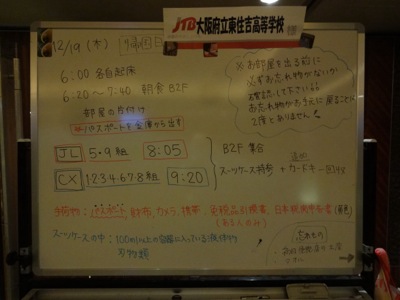 JTB 大阪府立東住吉高等学校
12/19 (木)
6:00 各自起床
6:20 ~ 7:40 朝食 B2F
部屋の片付け
パスポートを金庫から出す
※お部屋を出る前に
必ずお忘れ物がないか
お確認して下さい
お忘れ物がお手元に戻ることは
2度とありません!
JL 5・9組 8:05
CX 1・2・3・4・6・7・8組 9:20
B2F 集合
スーツケース持参 + カードキー 回収
手荷物: パスポート, 財布, カメラ, 携帯, 免税品引換書, 日本税関申告書 (黄色)
(ある人のみ)
スーツケースの中: 100ml以上の容器に入っている液体物
刃物類
忘れもの